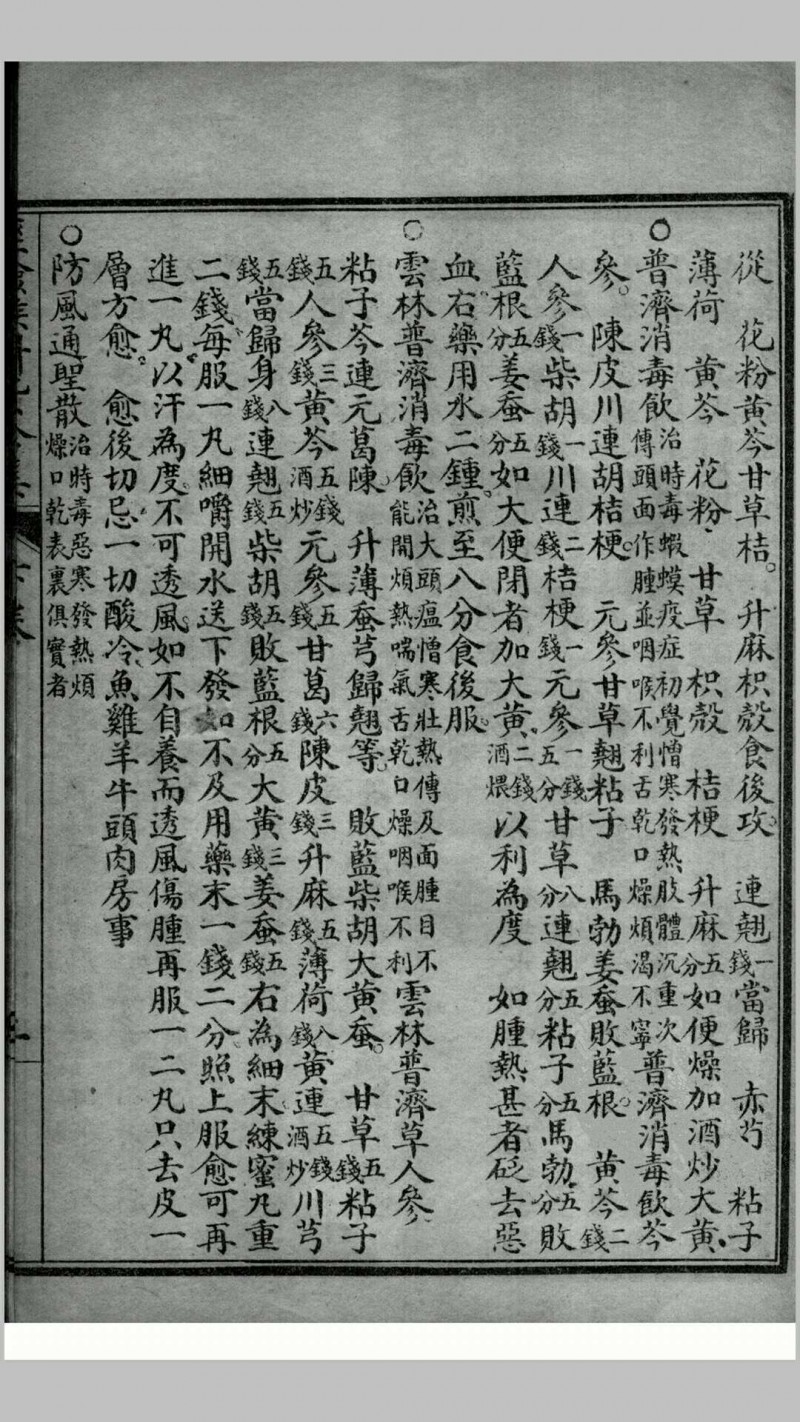 從　花粉黃芩甘草桔。升麻枳殼食後攻　連翹一錢當歸　赤芍　粘子
薄荷　黃芩　花粉　甘草　枳殼　桔梗　升麻五分如便燥加酒炒大黃
○普濟消毒飲治時毒蝦蟆疫症初覺憎寒發熱肢體沉重次傳頭面作腫並咽喉不利舌乾口燥煩渴不寧普濟消毒飲芩
參。陳皮川連胡桔梗。元參甘草翹粘子　馬勃姜蚕敗藍根。黃芩二錢
人參一錢柴胡一錢川連二錢桔梗一錢元參一錢五分甘草八分連翹五分粘子五分馬勃五分敗
藍根五分姜蚕五分如大便閉者加大黃二錢酒煨以利為度　如腫熱甚者砭去惡
血右藥用水二鍾煎至八分食後服
○雲林普濟消毒飲治大頭瘟憎寒壯熱傳及面腫目不能開煩熱喘氣舌乾口燥咽喉不利雲林普濟草人參
粘子芩連元葛陳　升薄蚕芎歸翹等。敗藍柴胡大黃蚕。甘草五錢粘子
五錢人參三錢黃芩五錢酒炒元參五錢甘葛六錢陳皮三錢升麻五錢薄荷八錢黃連五錢酒炒川芎
五錢當歸身八錢連翹五錢柴胡五錢敗藍根五分大黃三錢姜蚕五錢右為細末練蜜丸重
二錢每服一丸細嚼開水送下發如不及用藥末一錢二分照上服愈可再
進一丸以汗為度不可透風如不自養而透風傷腫再服一二丸只去皮一
層方愈　愈後切忌一切酸冷魚雞羊牛頭肉房事
○防風通聖散治時毒惡寒發熱煩燥口乾表裏俱實者